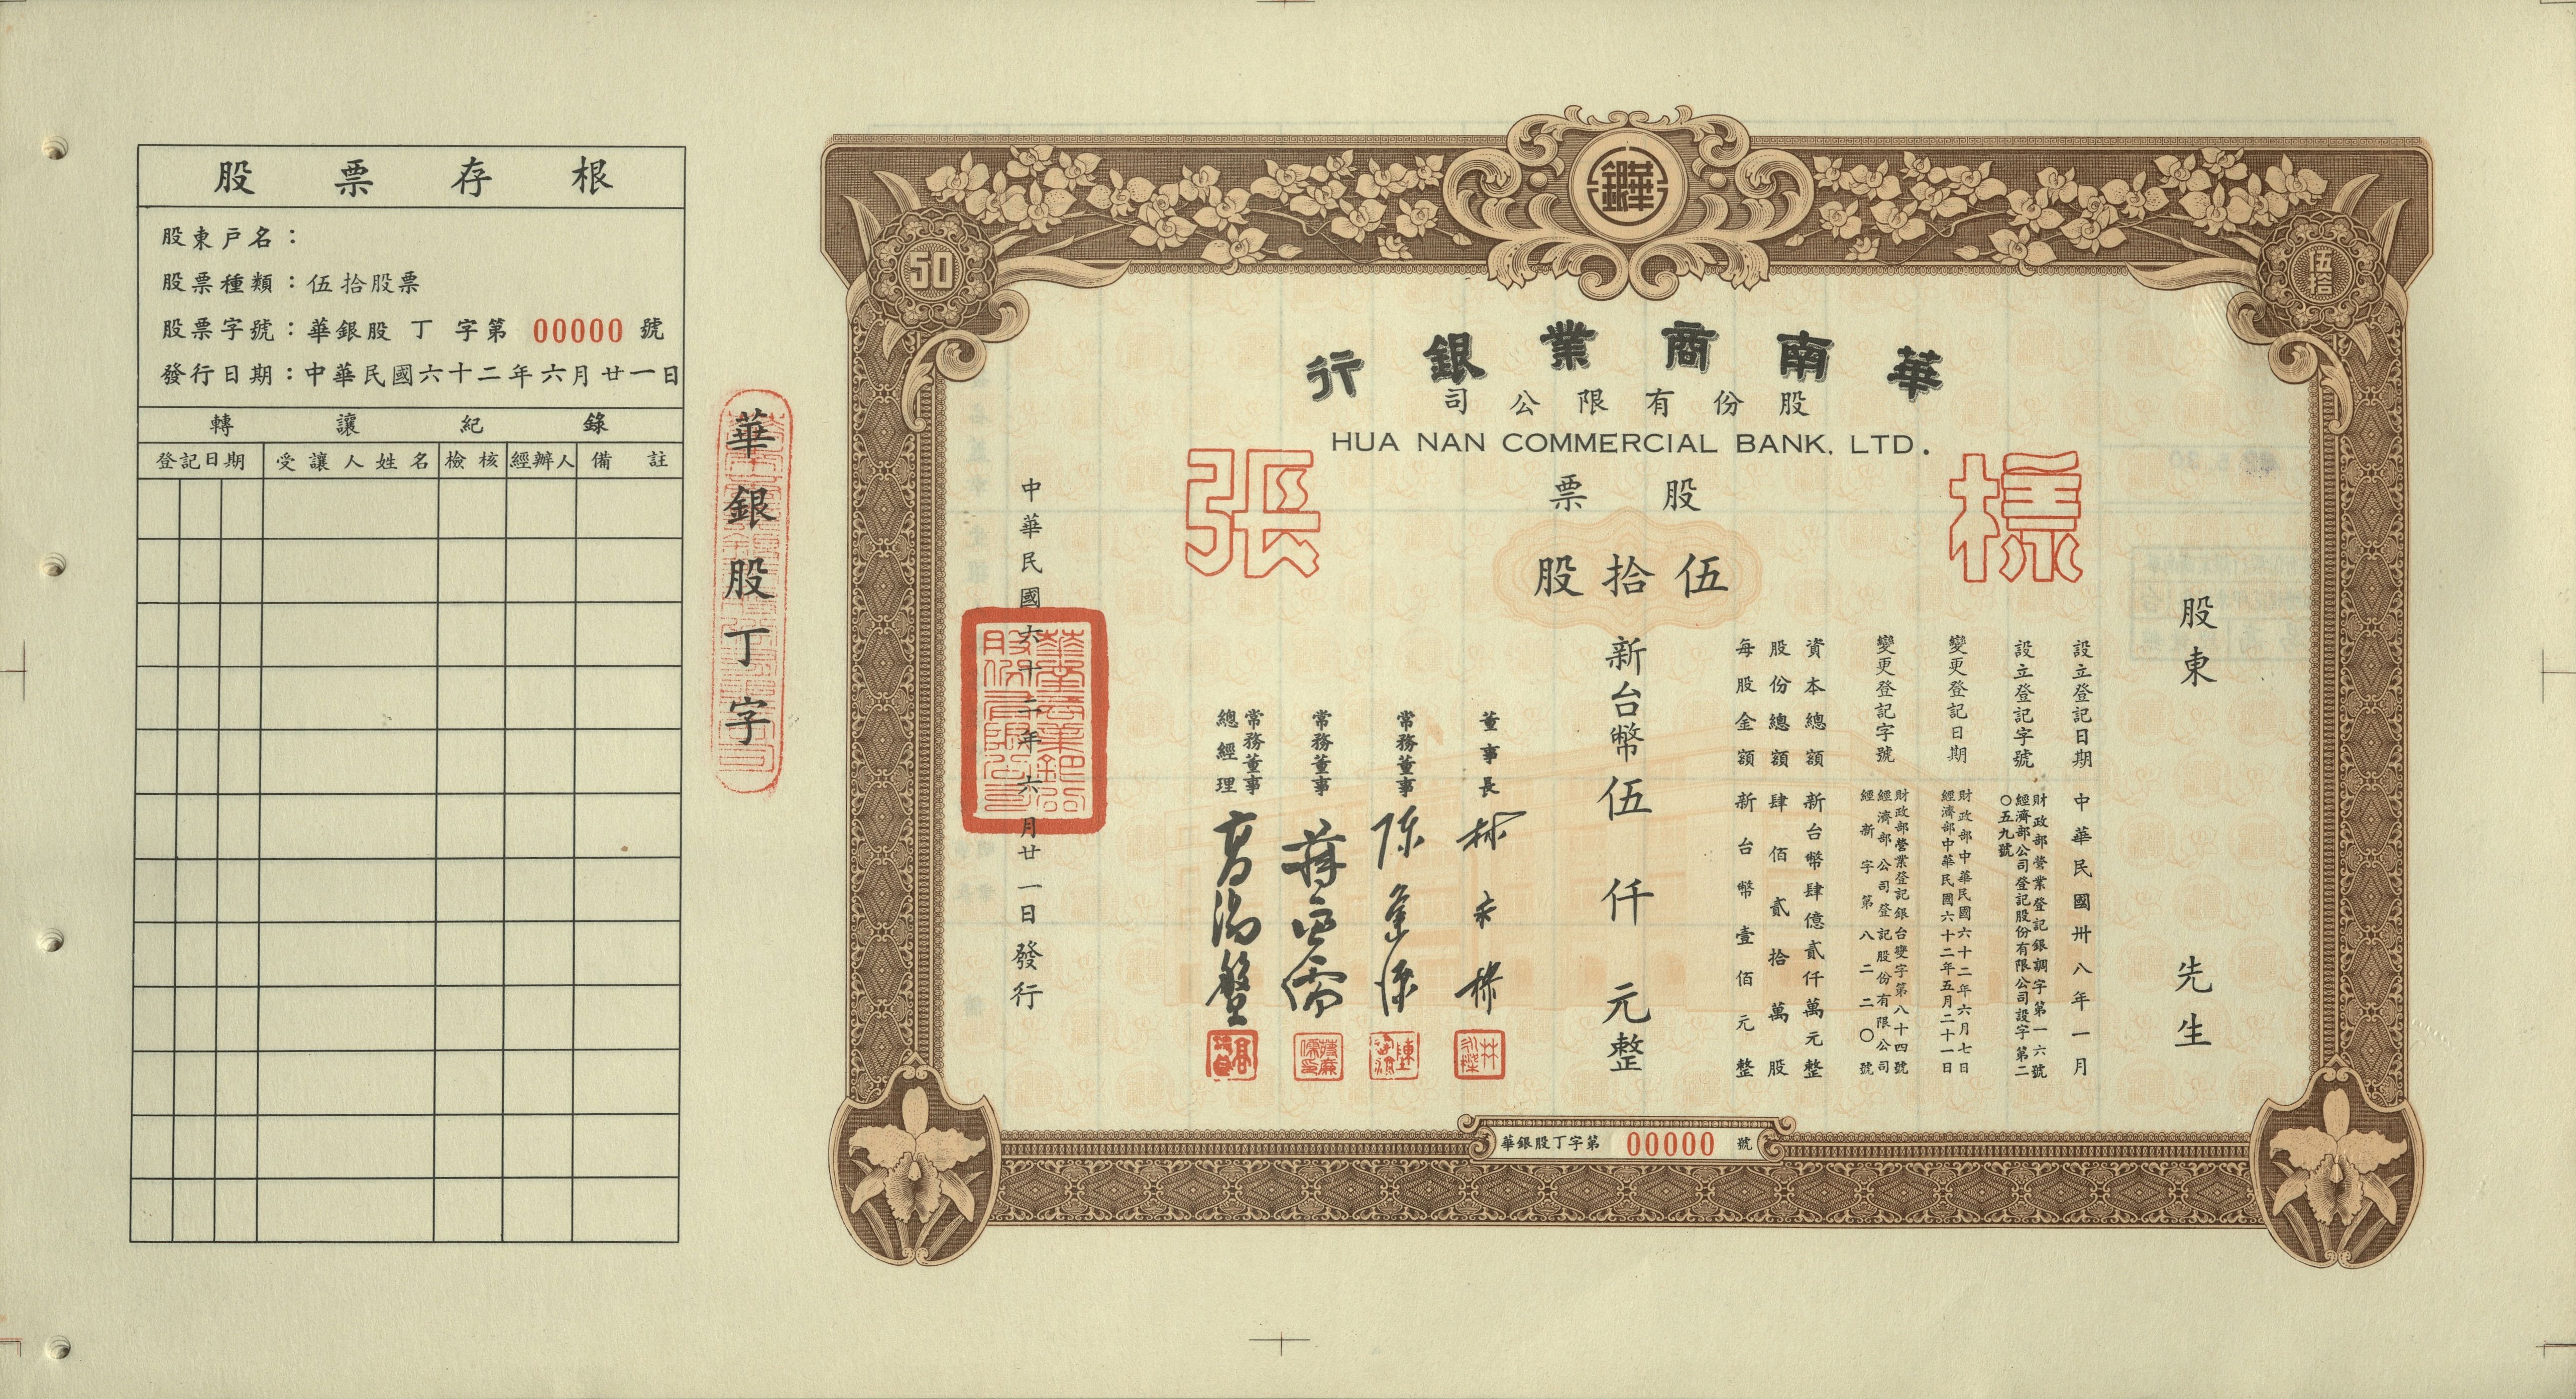 股票存根
股東戶名：
股票種類：伍拾股票
股票字號：華銀股 丁 字第 00000 號
發行日期：中華民國六十二年六月廿一日
轉讓紀錄
登記日期 受讓人姓名 檢核 經辦人 備註
華銀股丁字
華銀
50
伍拾
華南商業銀行
股份有限公司
HUA NAN COMMERCIAL BANK, LTD.
股票
樣張
伍拾股
股東 先生
設立登記日期 中華民國卅八年一月
設立登記字號 財政部營業登記銀調字第一六號
經濟部公司登記股份有限公司設字第二
〇五九號
變更登記日期 財政部中華民國六十二年六月七日
經濟部中華民國六十二年五月二十一日
變更登記字號 財政部營業登記銀台變字第八十四號
經濟部公司登記股份有限公司
經新字第八二二〇號
資本總額 新台幣肆億貳仟萬元整
股份總額 肆佰貳拾萬股
每股金額 新台幣壹佰元整
新台幣伍仟元整
董事長 林永樑
常務董事 陳
常務董事 蔣
常務董事
總經理 高湯盤
中華民國六十二年六月廿一日發行
華南商業銀行股份有限公司
華銀股丁字第 00000 號